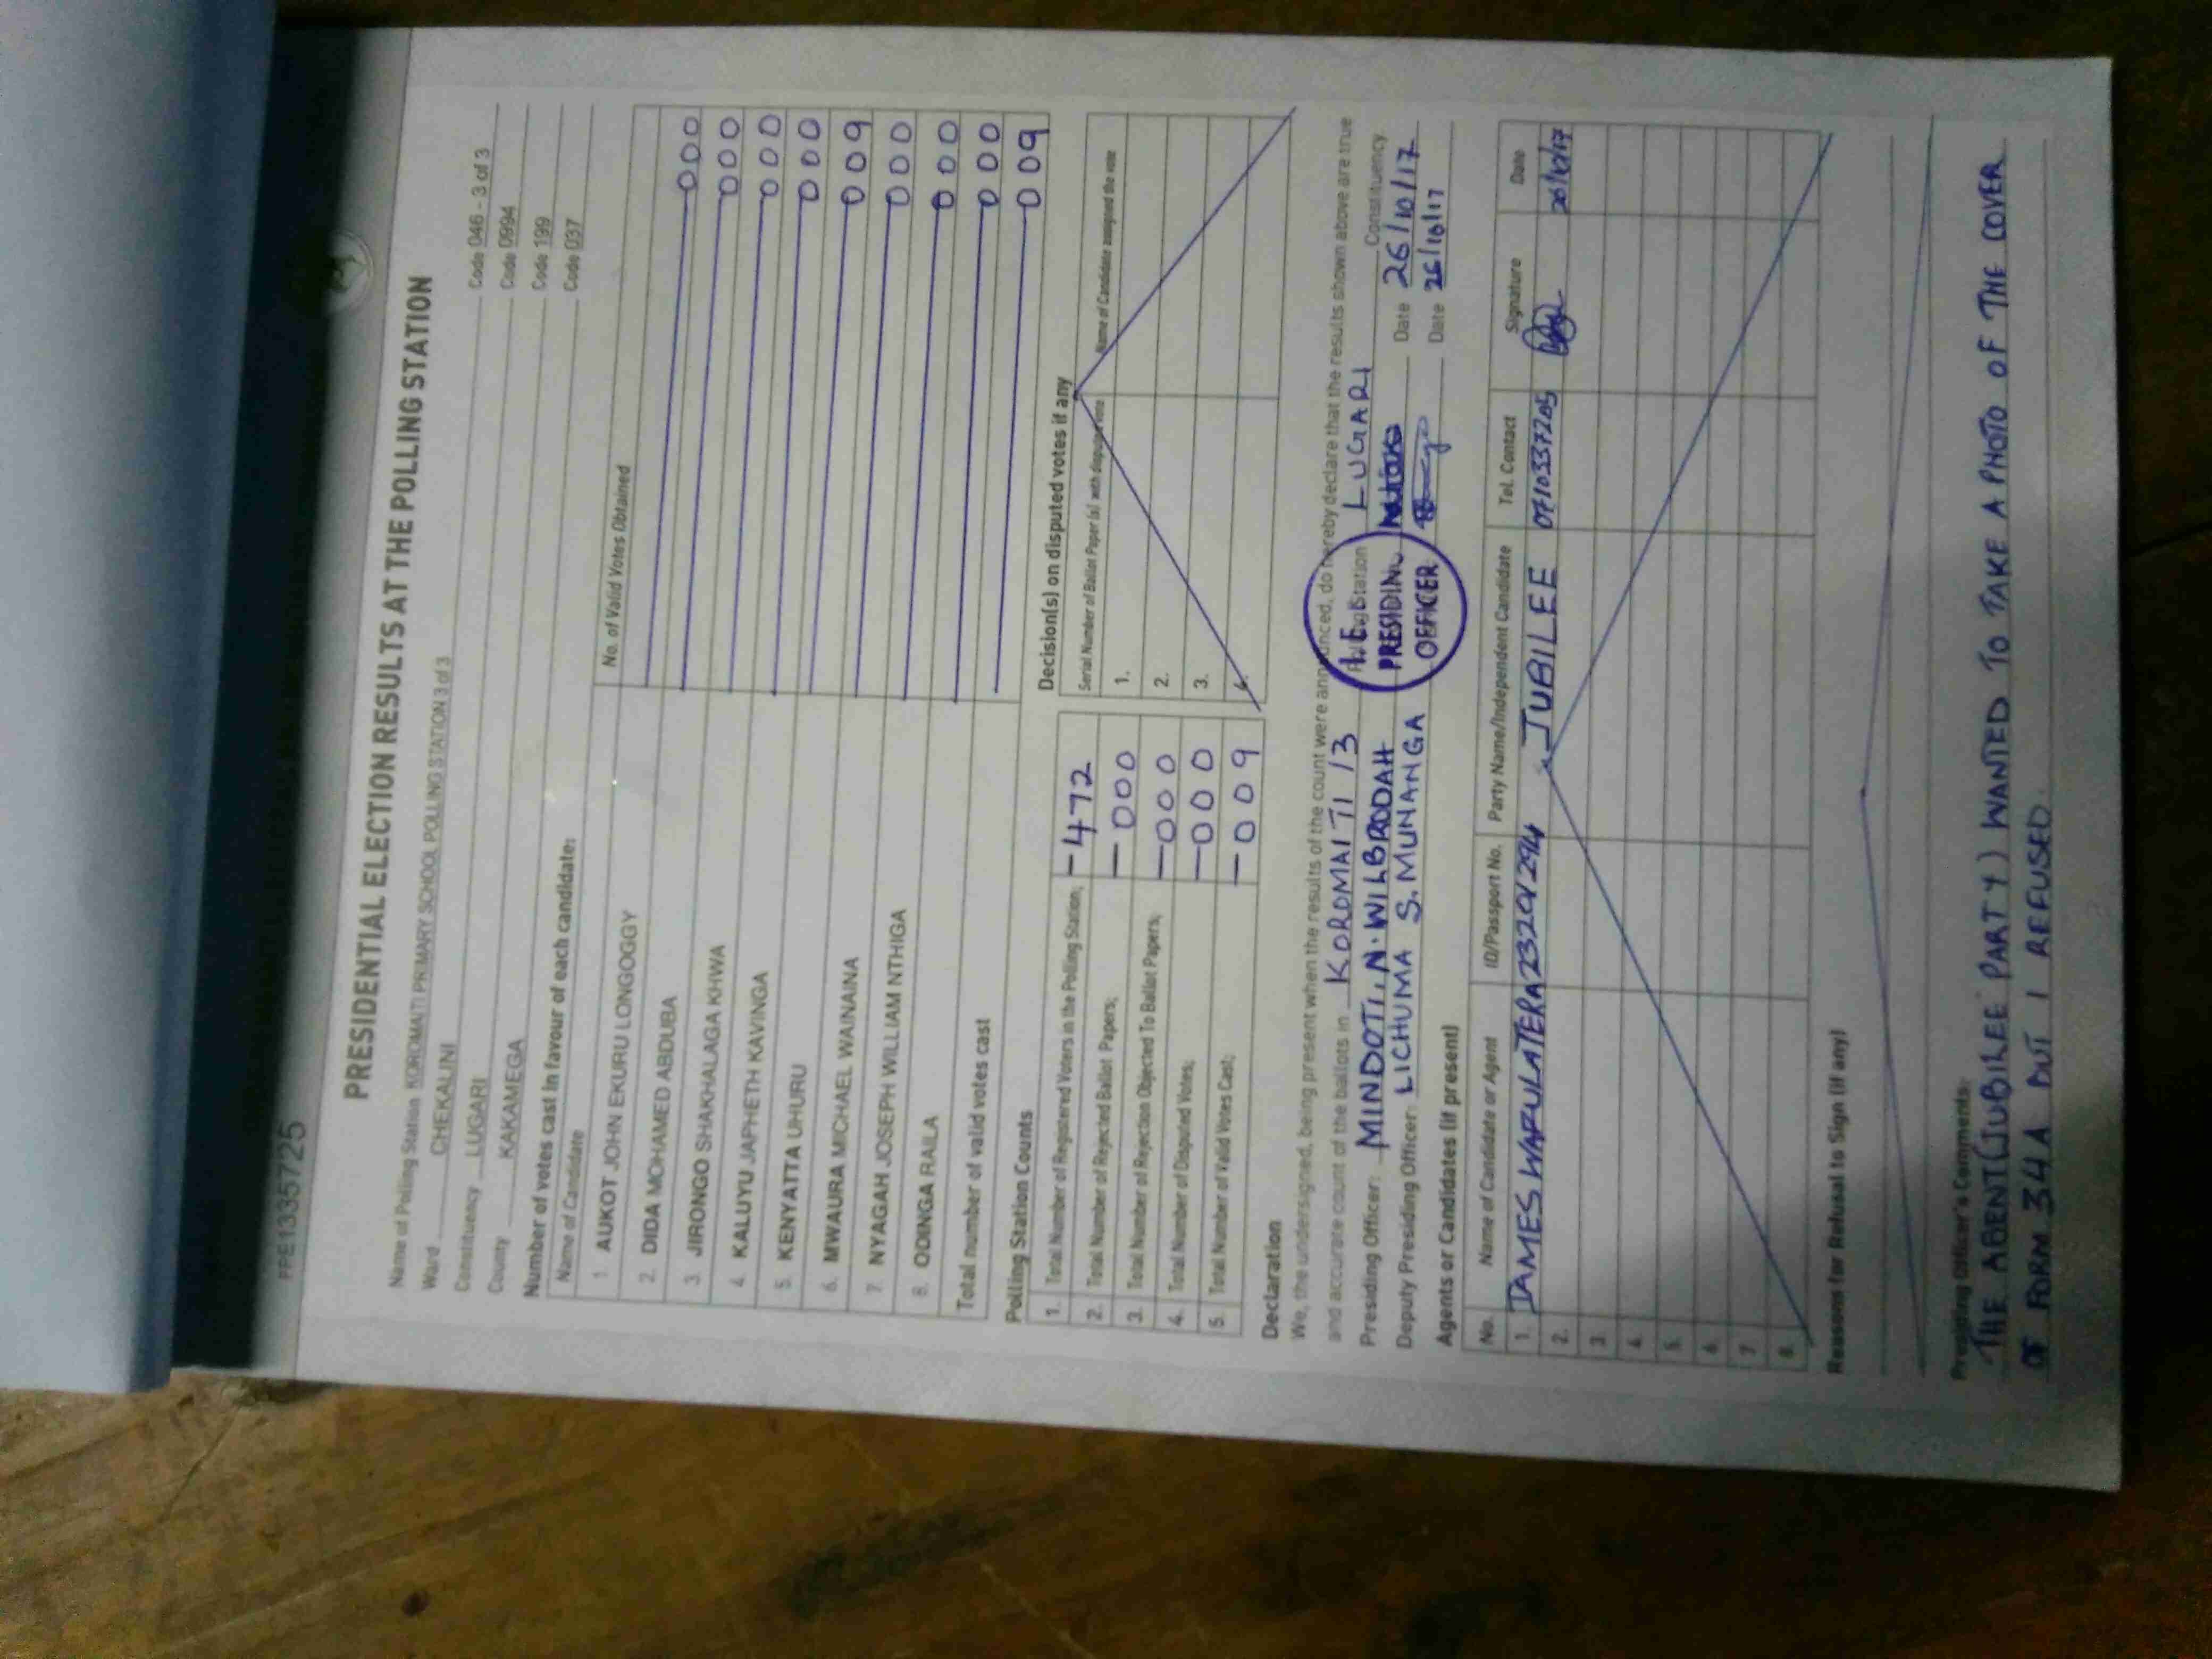 FPE1335725
PRESIDENTIAL ELECTION RESULTS AT THE POLLING STATION
Name of Polling Station KOROMAITI PRIMARY SCHOOL POLLING STATION 3 of 3 Code 046 - 3 of 3
Ward CHEKALINI Code 0994
Constituency LUGARI Code 199
County KAKAMEGA Code 037
Number of votes cast in favour of each candidate:
Name of Candidate No. of Valid Votes Obtained
1. AUKOT JOHN EKURU LONGOGGY 000
2. DIDA MOHAMED ABDUBA 000
3. JIRONGO SHAKHALAGA KHWA 000
4. KALUYU JAPHETH KAVINGA 000
5. KENYATTA UHURU 009
6. MWAURA MICHAEL WAINAINA 000
7. NYAGAH JOSEPH WILLIAM NTHIGA 000
8. ODINGA RAILA 000
Total number of valid votes cast 009
Polling Station Counts
1. Total Number of Registered Voters in the Polling Station; -472
2. Total Number of Rejected Ballot Papers; -000
3. Total Number of Rejection Objected To Ballot Papers; -000
4. Total Number of Disputed Votes; -000
5. Total Number of Valid Votes Cast; -009
Decision(s) on disputed votes if any
Serial Number of Ballot Paper (s) with disputed vote Name of Candidate assigned the vote
1.
2.
3.
4.
Declaration
We, the undersigned, being present when the results of the count were announced, do hereby declare that the results shown above are true
and accurate count of the ballots in KOROMAITI 13 Polling Station LUGARI Constituency
Presiding Officer: MINDOTI, N. WILBRODAH Date 26/10/17
Deputy Presiding Officer: LICHUMA S. MUNANGA Date 26/10/17
PRESIDING
OFFICER
Agents or Candidates (if present)
No. Name of Candidate or Agent ID/Passport No. Party Name/Independent Candidate Tel. Contact Signature Date
1. JAMES WAFULA JUBILEE 26/10/17
2.
3.
4.
5.
6.
7.
8.
Reasons for Refusal to Sign (if any)
Presiding Officer's Comments:
THE AGENT (JUBILEE PARTY) WANTED TO TAKE A PHOTO OF THE COVER
OF FORM 34A BUT I REFUSED.